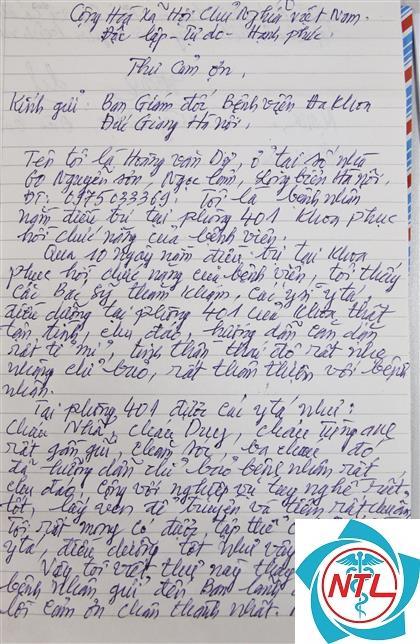 Cộng Hoà Xã Hội Chủ Nghĩa Việt Nam.
Độc lập - Tự do - Hạnh phúc.
Thư Cảm ơn.
Kính gửi: Ban Giám đốc Bệnh viện Đa Khoa
Đức Giang Hà Nội.
Tên tôi là Hoàng Văn Dự, ở tại số nhà
60 Nguyễn Sơn, Ngọc Lâm, Long Biên Hà Nội.
ĐT: 0975033369. Tôi là bệnh nhân
nằm điều trị tại phòng 401 Khoa phục
hồi chức năng của bệnh viện.
Qua 10 ngày nằm điều trị tại Khoa
phục hồi chức năng của bệnh viện, tôi thấy
các Bác sỹ thăm khám, các y tá
điều dưỡng tại phòng 401 của Khoa thật
tận tình, chu đáo, hướng dẫn căn dặn
rất tỉ mỉ, tinh thần thái độ rất nhẹ
nhàng chỉ bảo, rất thân thiện với bệnh
nhân.
Tại phòng 401 được các y tá như:
Cháu Nhã, cháu Dung, cháu Tùng
rất gần gũi, chăm sóc, ba cháu đó
đã hướng dẫn chỉ bảo bệnh nhân rất
chu đáo, cộng với nghiệp vụ tay nghề rất
tốt, lấy ven để truyền và tiêm rất chuẩn
Tôi rất mong có được tập thể
y tá, điều dưỡng tốt như vậy
Vậy tôi viết thư này thay
bệnh nhân gửi đến Ban lãnh
lời cảm ơn chân thành nhất.
NTL